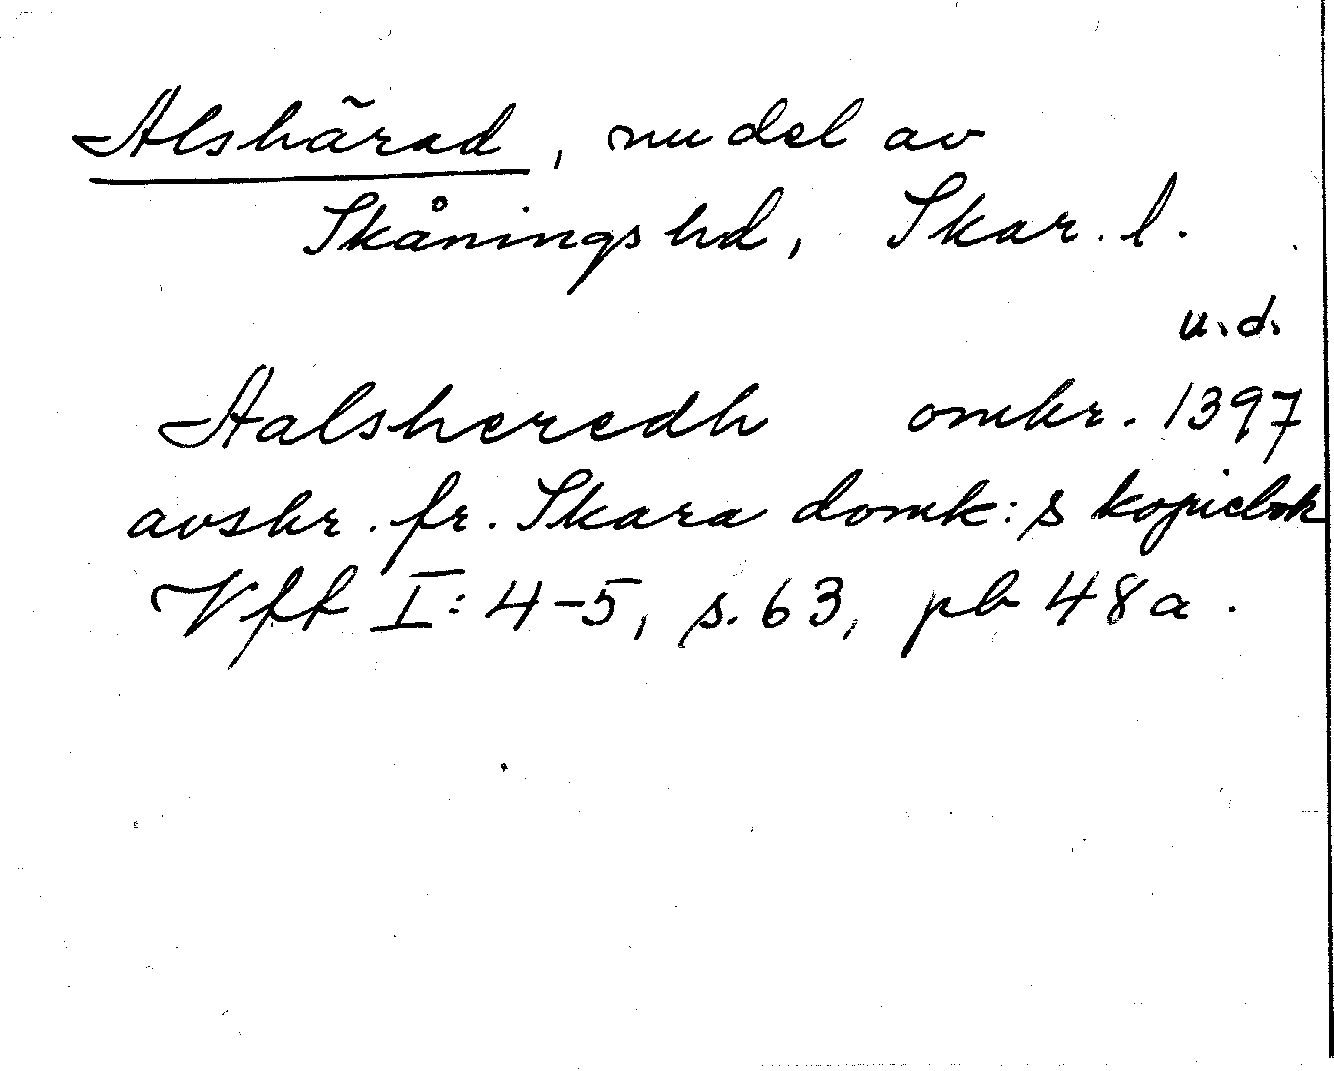 Alshärad, nu del av
Skånings hd, Skar. l.
u.d.
Aalsheredh omkr. 1397
avskr. fr. Skara domk:s kopiebok
Vff I: 4-5, s. 63, pb 48a.